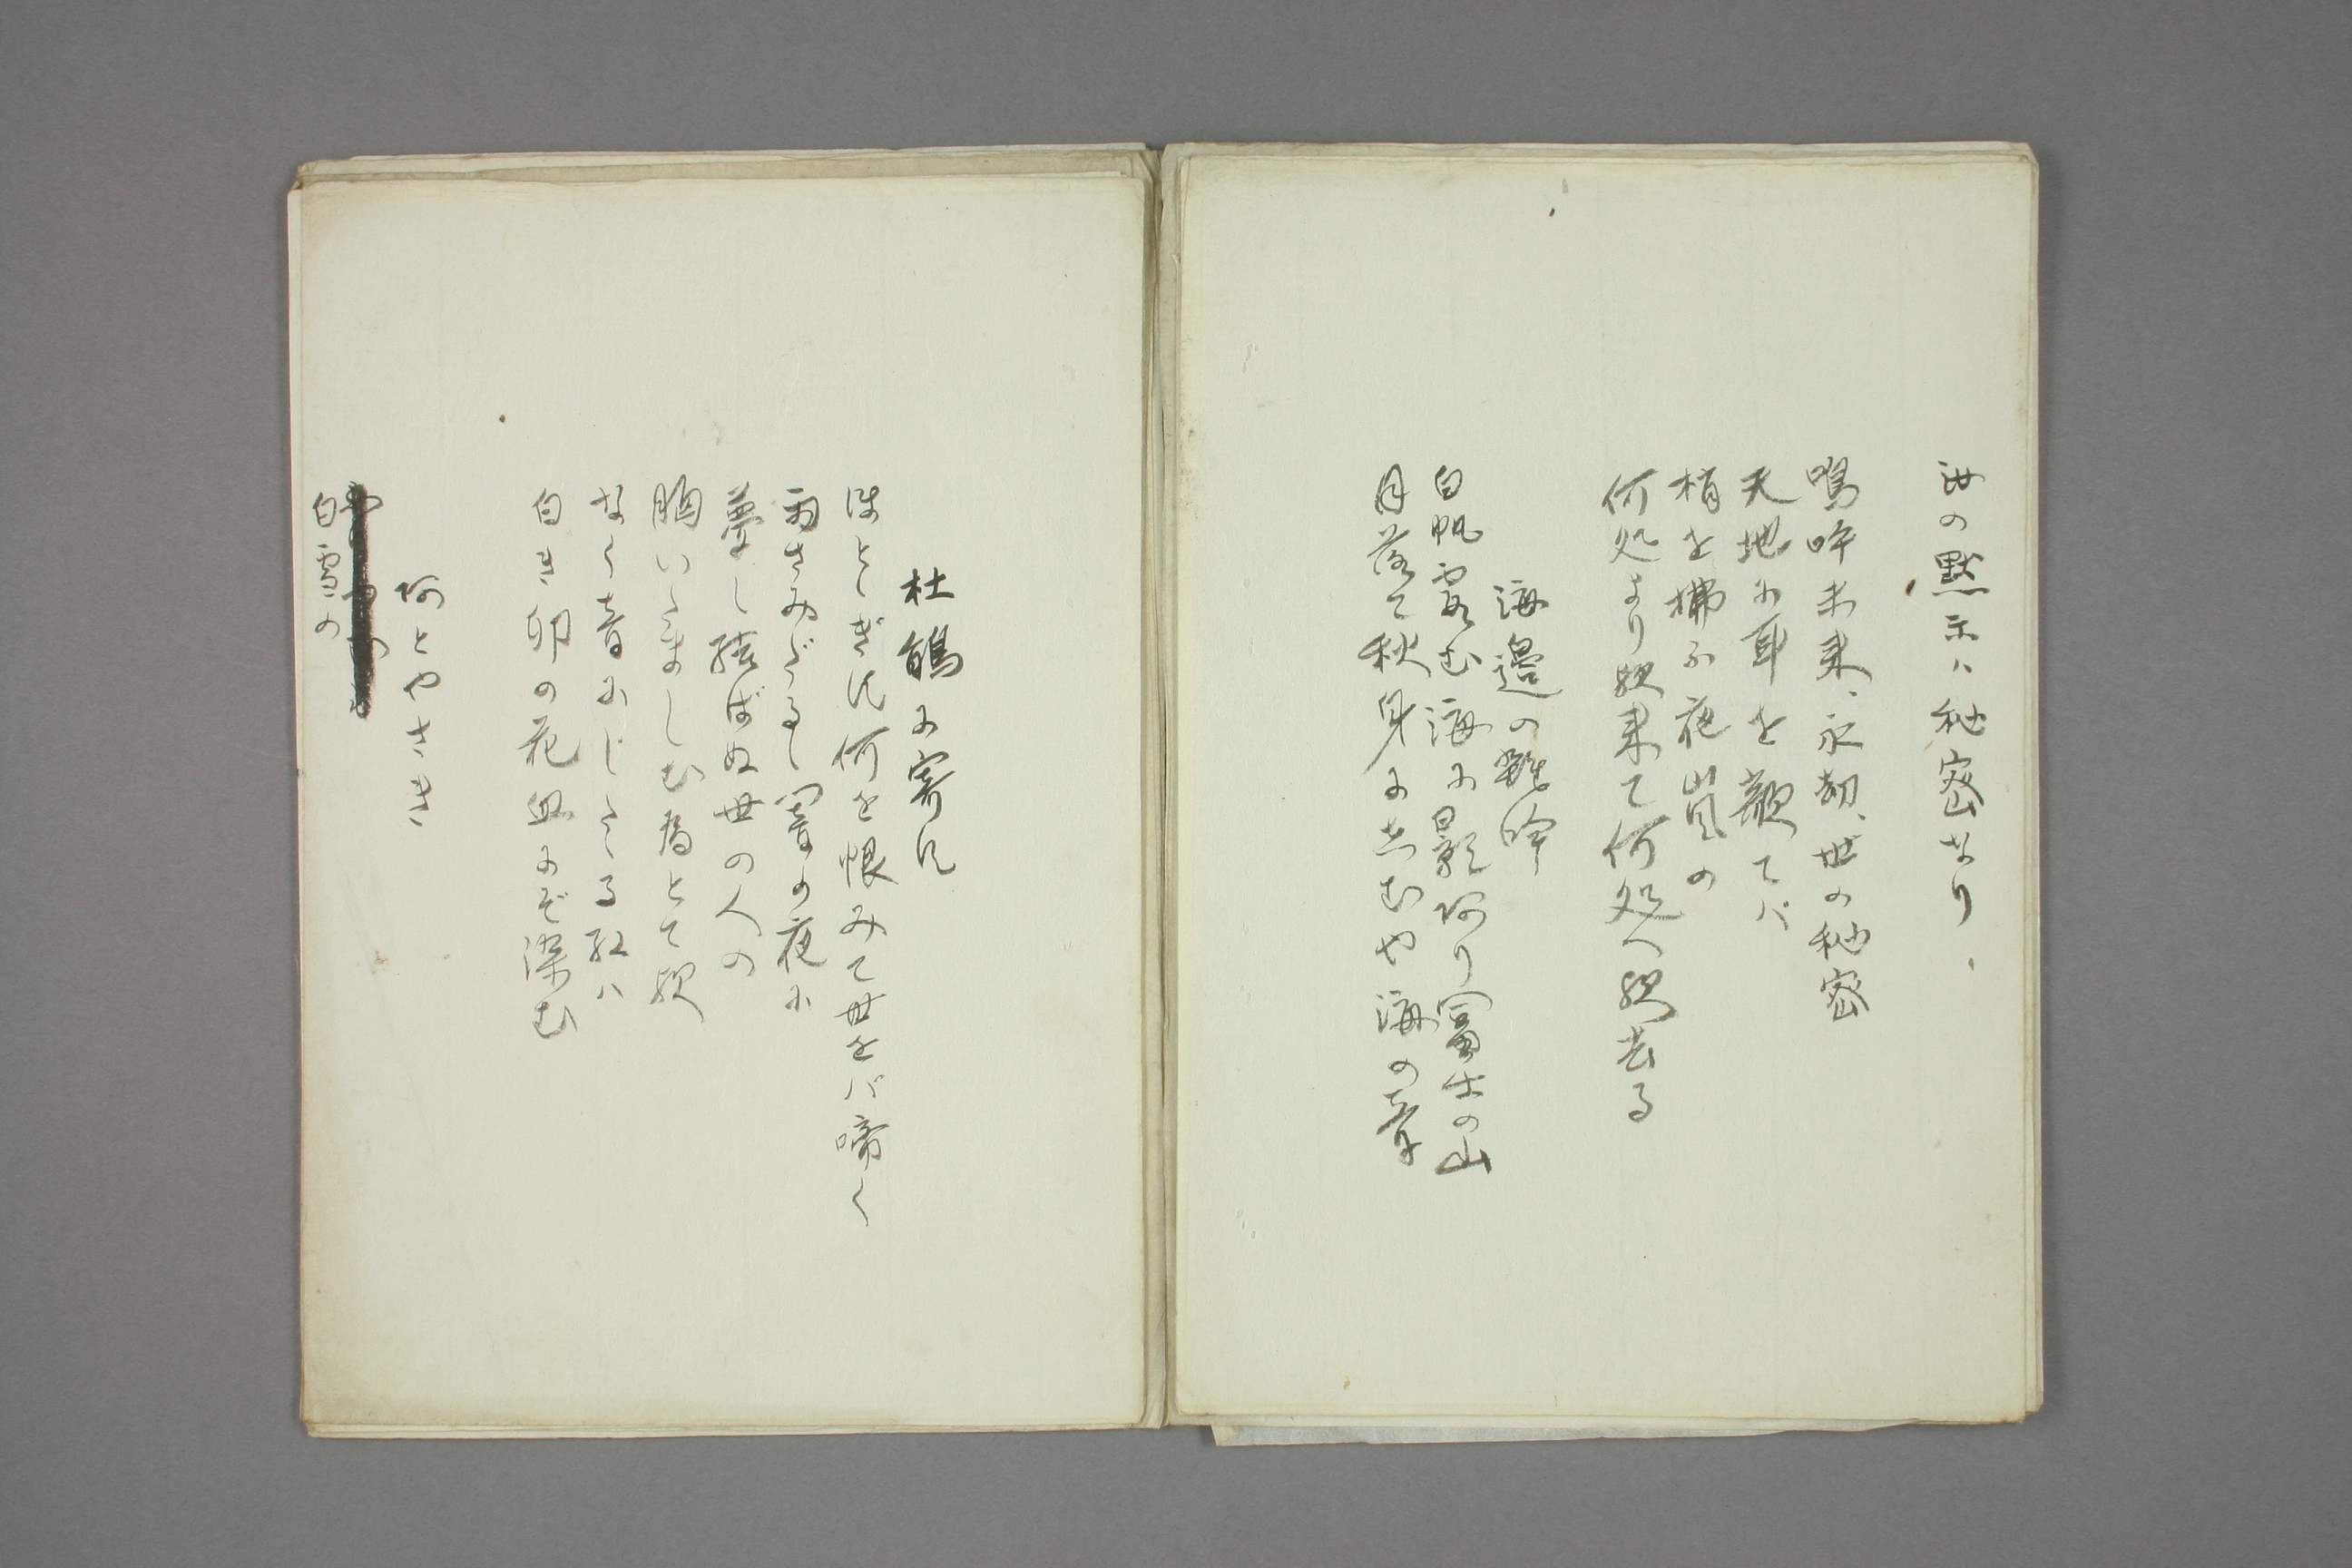 汝の黙示ハ秘密なり、
嗚呼未来、永劫、世の秘密
天地に耳を敧てバ
梢を拂ふ夜嵐の
何処より欤来て何処へ欤去る
海邉の雜吟
白帆霞む海に影阿り冨士の山
月落て秋身に志むや海の音
杜鵑に寄す
ほとゝぎす何を恨みて世をバ啼く
雨さみだるゝ闇の夜に
夢し結ばぬ世の人の
胸いたましむ為とて欤
なく音にじたる紅ハ
白き卯の花血にぞ染む
阿とやさき
白雪の